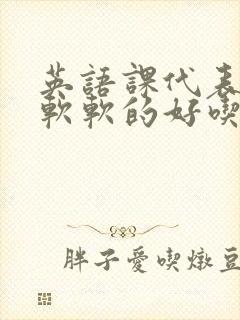 英語課代表
軟軟的好喫
胖子愛喫燉豆